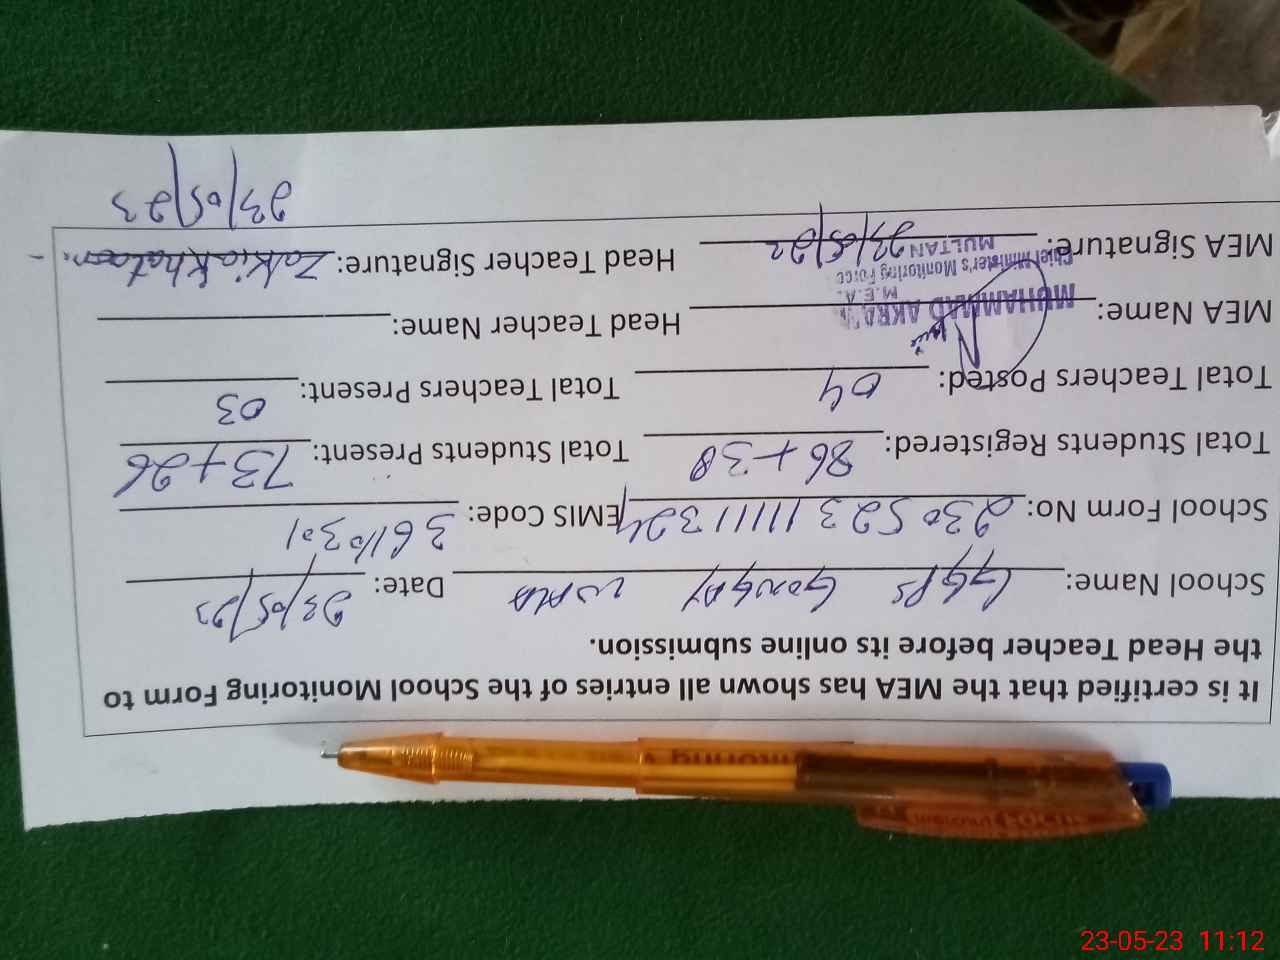 It is certified that the MEA has shown all entries of the School Monitoring Form to
the Head Teacher before its online submission.
School Name: GGPS GONGAY WALA Date: 23/05/23
School Form No: 230523111111324 EMIS Code: 36110301
Total Students Registered: 86+38 Total Students Present: 73+26
Total Teachers Posted: 04 Total Teachers Present: 03
MEA Name: Head Teacher Name:
MUHAMMAD AKRAM
M.E.A.
Chief Minister's Monitoring Force
MULTAN
MEA Signature: 23/05/23 Head Teacher Signature: Zakia Khatoon
23/05/23
23-05-23 11:12